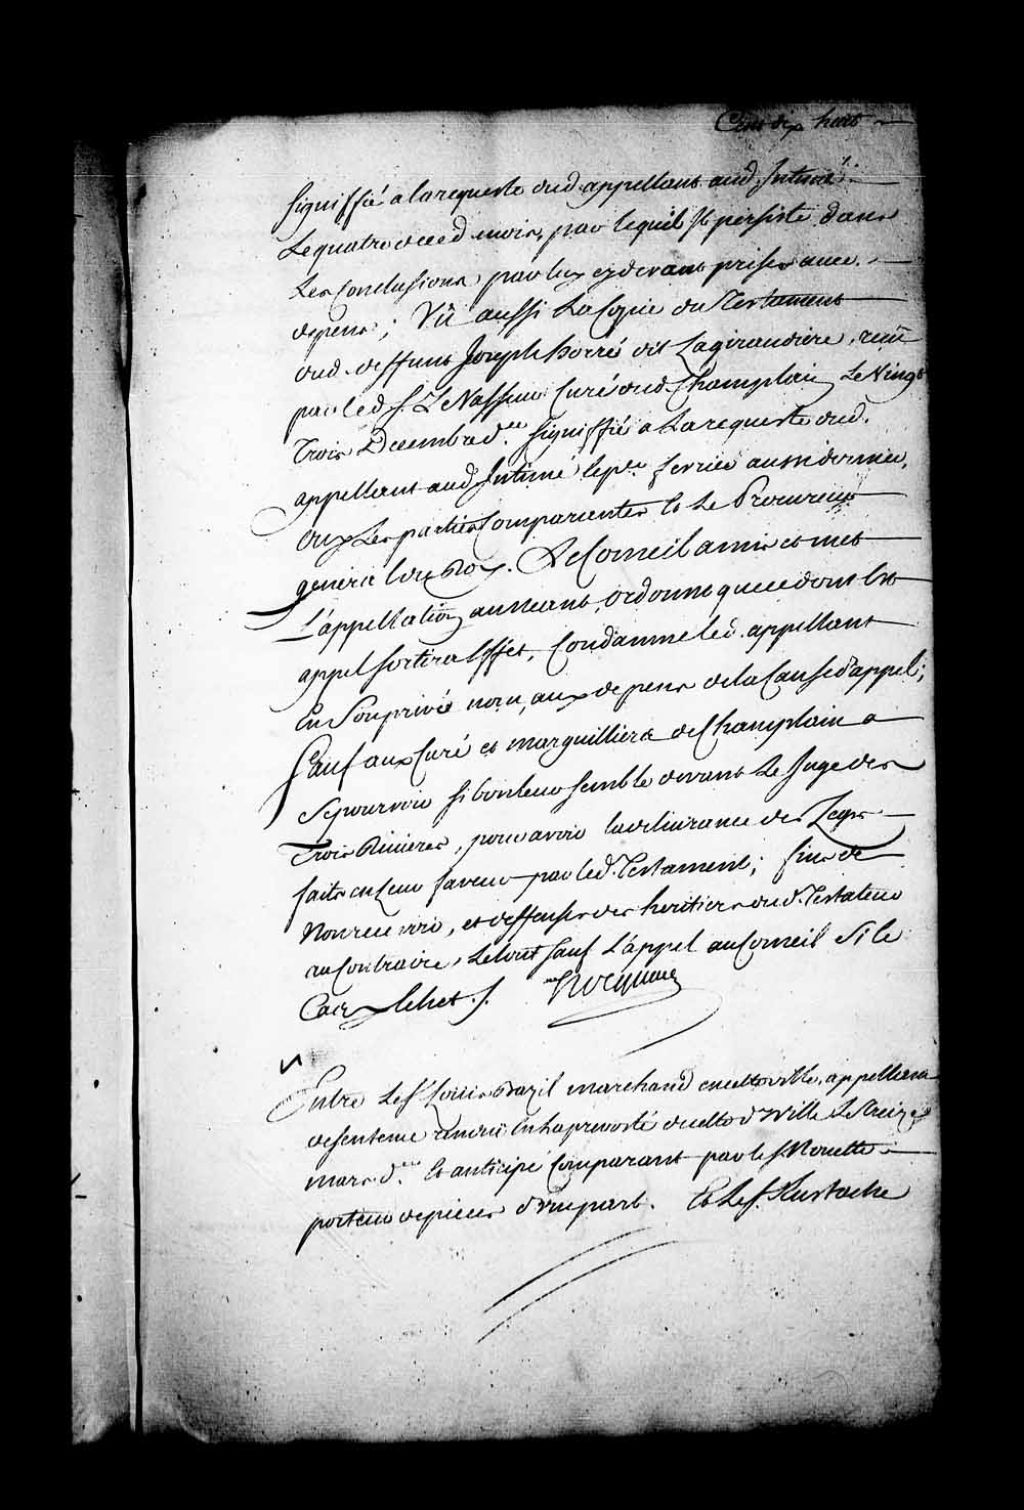 Cent dix huit
signiffié a la requeste dud. appellant aud. Intimé
Le quatre de ce d. mois, par lequel Il persiste dans
Les Conclusions par luy cy devant prises avec
depens; Vû aussi La Copie du Testament
dud. deffunt Joseph dit Lagiraudiere, reçû
par led. S. Le Vasseur Curé dud. Champlain Le Vingt
Trois Decembre d.er signiffié a La requeste dud.
appellant aud. Intimé le p.er fevrier aussi dernier,
ouy Les parties Comparantes Et Le Procureur
general du Roy. Le Conseil a mis et met
L'appellation au neant, ordonne que ce dont Est
appel sortira Effet, Condamne led. appellant
En Son privé nom, aux depens de la Cause d'appel;
Sauf aux Curé et marguilliers de Champlain a
se pourvoir si bon leur semble devant Le Juge des
Trois Rivieres, pour avoir la delivrance des Legs
faits en Leur faveur par led. Testament; fins de
Non recevoir, et deffenses des heritiers dud. Testateur
au Contraire, Le tout sauf L'appel au Conseil S'il
Echet ./. hocquart
Entre Le S.r Louis Bazil marchand en cette ville, appellant
de sentence rendue En La prevosté de cette d. Ville Le Treize
mars d.er Et anticipé Comparant par le S. Nouette
porteur de pieces d'une part. Et Le S. Eustache